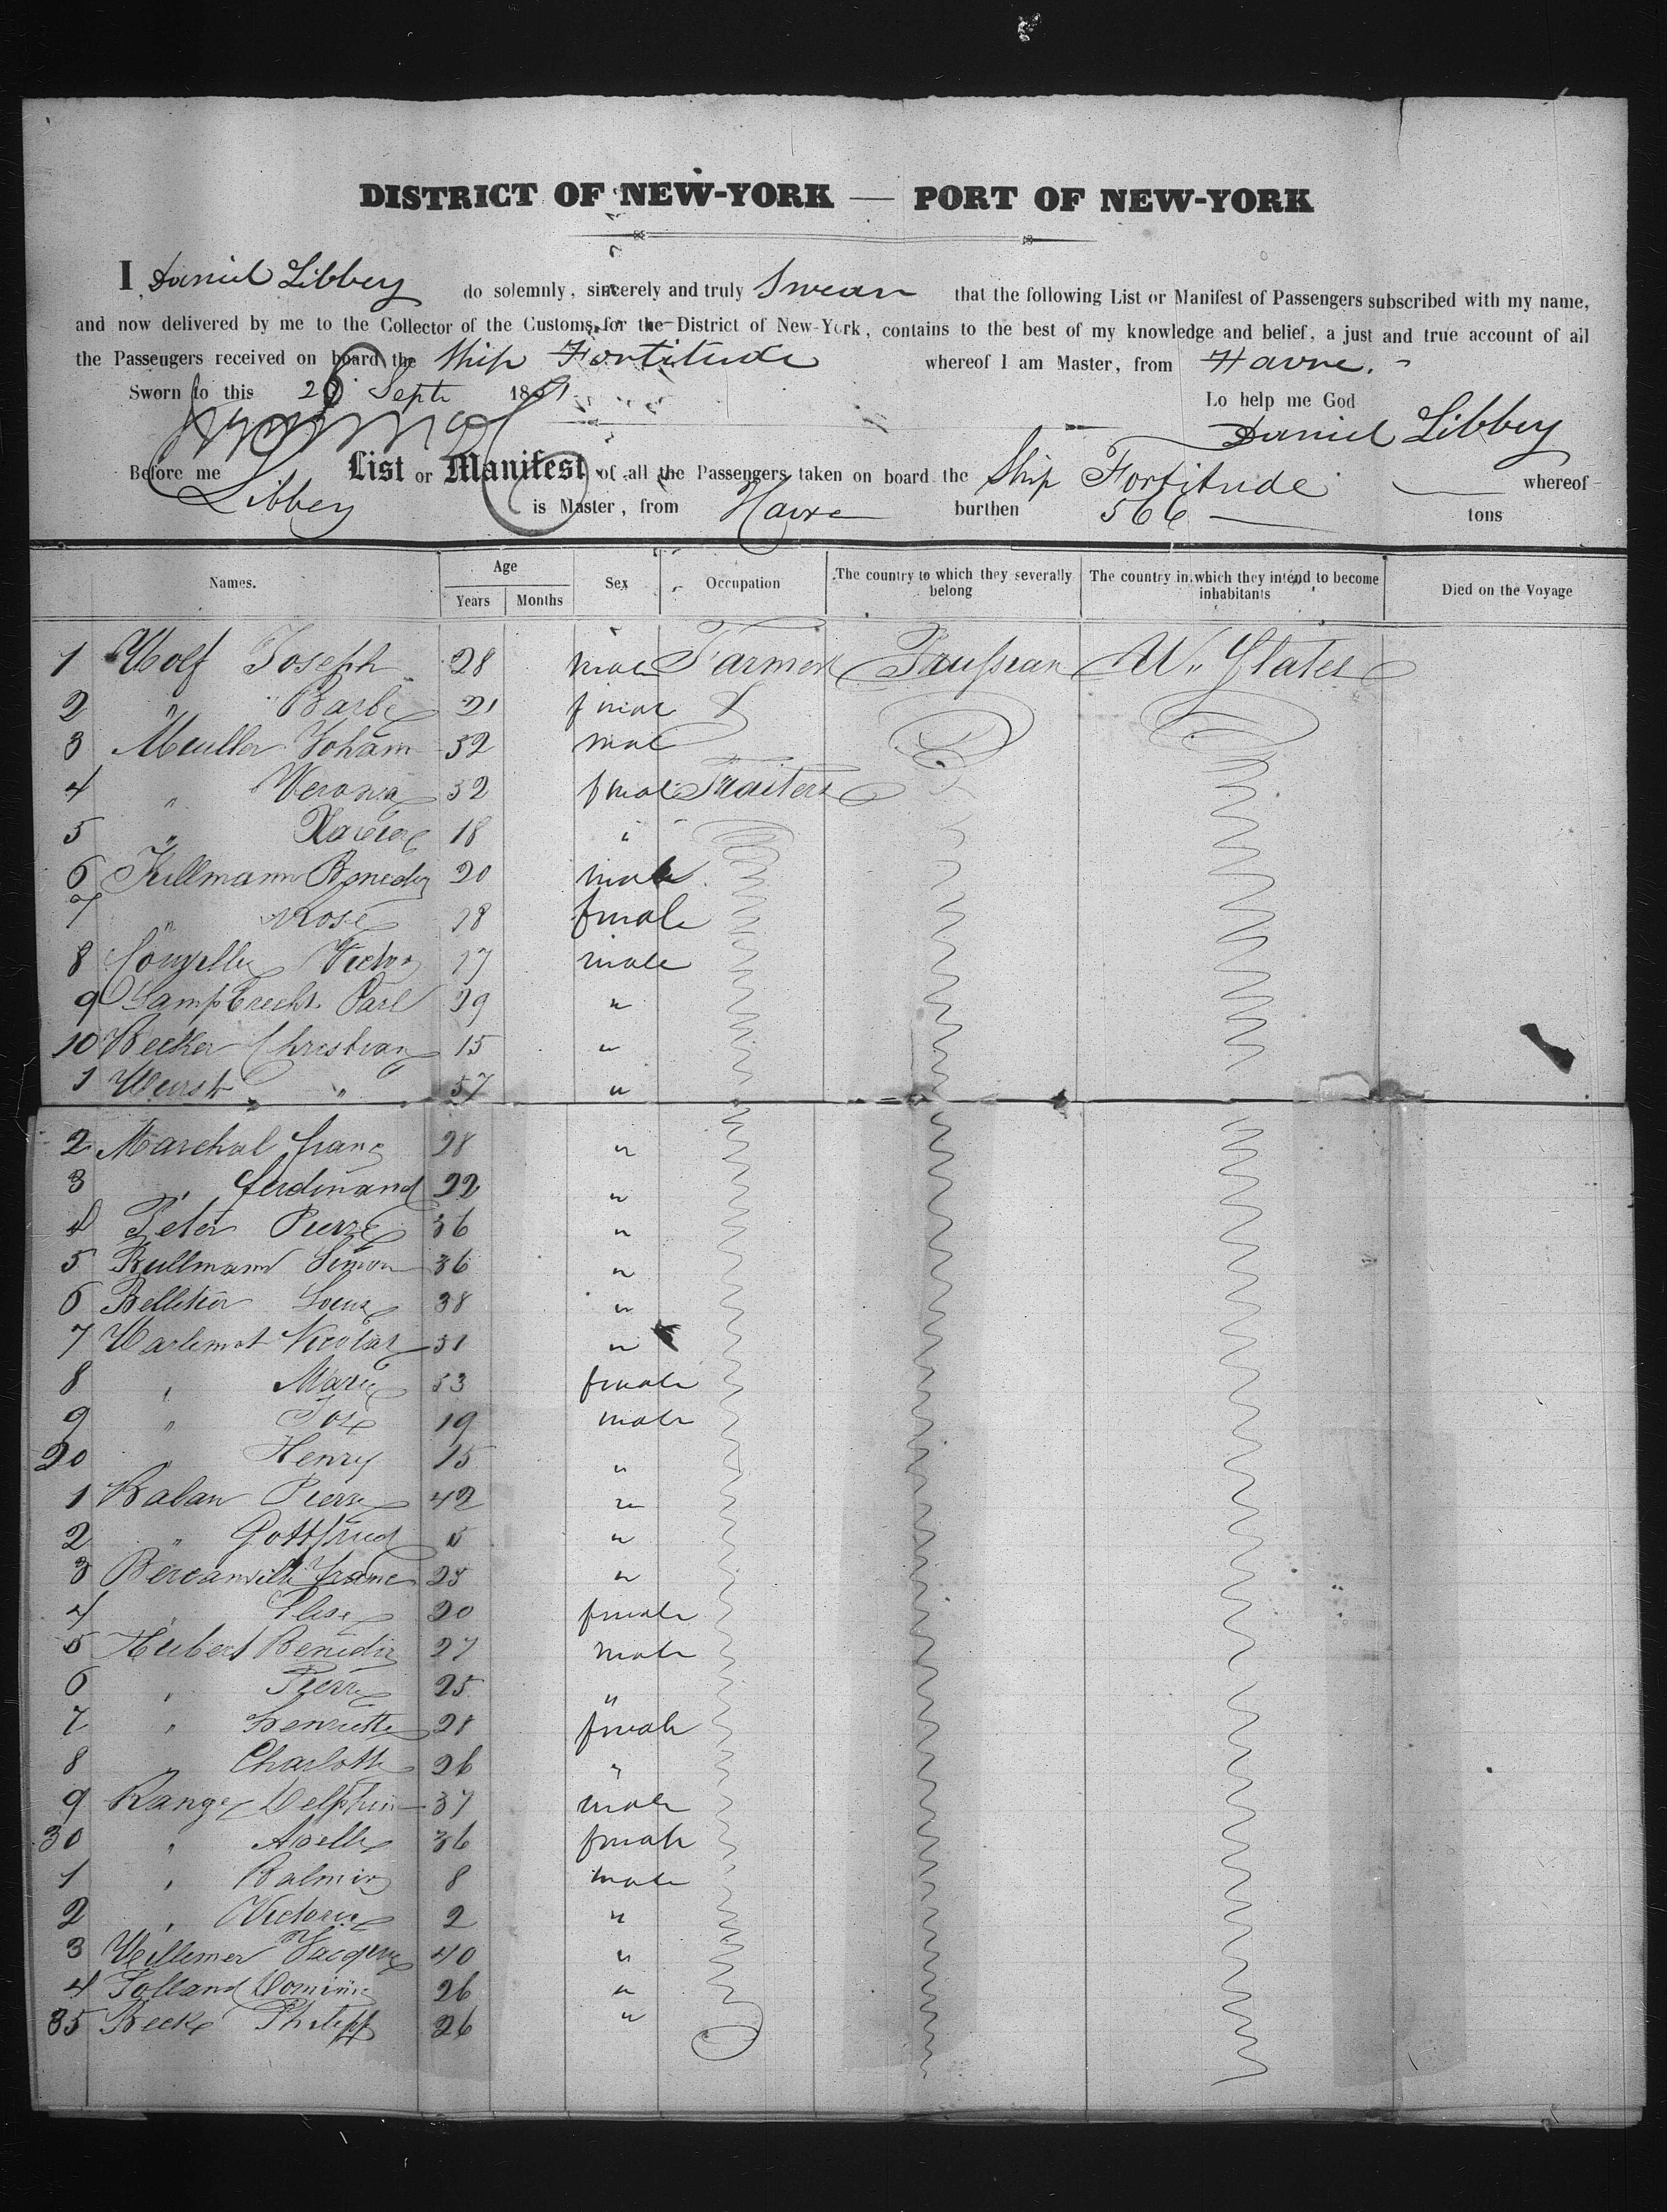 DISTRICT OF NEW-YORK — PORT OF NEW-YORK
I Daniel Libbey do solemnly, sincerely and truly Swear that the following List or Manifest of Passengers subscribed with my name,
and now delivered by me to the Collector of the Customs for the District of New-York, contains to the best of my knowledge and belief, a just and true account of all
the Passengers received on board the Ship Fortitude whereof I am Master, from Havre.
Sworn to this Sept 185 Lo help me God
Daniel Libbey
Before me List or Manifest of all the Passengers taken on board the Ship Fortitude whereof
Libbey is Master, from Havre burthen 566 tons
Names. Age Years Months Sex Occupation The country to which they severally belong The country in which they intend to become inhabitants Died on the Voyage
1 Wolf Joseph 28 male Farmer Prussian U. States
2 " Barbe 21 fmale
3 Muller Joham 32 male
4 " Verona 32 fmale
5 " 18 "
6 Killmann Benedig 20 male
7 " Rose 18 fmale
8 Victor 17 male
9 Lampbrecht Carl 29 "
10 Becker Christian 15 "
1 Wurst " 57 "
2 Marchal franz 28 "
3 " ferdinand 22 "
4 Peter Pierre 36 "
5 Bullmann Simon 36 "
6 Belletier Louis 38 "
7 Nicolas 51 "
8 " Marie 53 fmale
9 " Jos 19 male
20 " Henry 15 "
1 Balan Pierre 42 "
2 " Gottfried 5 "
3 25 "
4 " Elise 20 fmale
5 Hubert Benedig 27 male
6 " Pierre 25 "
7 " henriette 28 fmale
8 " Charlotte 26 "
9 Range Delphin 37 male
30 " Adelle 36 fmale
1 " Balmir 8 male
2 " Victorie 2 "
3 Willemer Jacques 40 "
4 Dominic 26 "
35 Beck Philipp 26 "